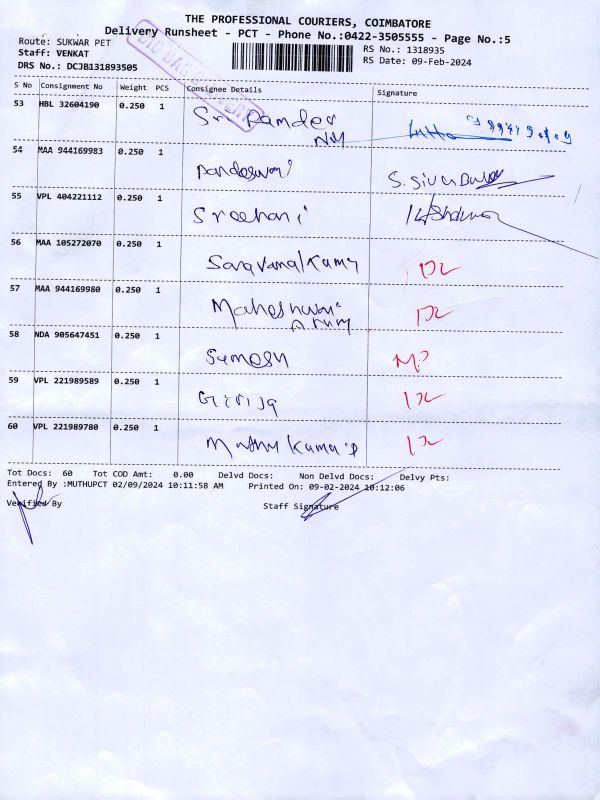 THE PROFESSIONAL COURIERS, COIMBATORE
Delivery Runsheet - PCT - Phone No.:0422-3505555 - Page No.:5
Route: SUKWAR PET
RS No.: 1318935
Staff: VENKAT
RS Date: 09-Feb-2024
DRS No.: DCJB131893505
S No Consignment No Weight PCS Consignee Details Signature
53 HBL 32604190 0.250 1 Sri Ramdev
54 MAA 944169983 0.250 1 Pandeswari
55 VPL 404221112 0.250 1 Sreehari
56 MAA 105272070 0.250 1 Saravanakumar
57 MAA 944169980 0.250 1 Maheshwari
Arum
58 NDA 905647451 0.250 1 Sumesh
59 VPL 221989589 0.250 1 Girija
60 VPL 221989780 0.250 1 Muthu Kumar
Tot Docs: 60 Tot COD Amt: 0.00 Delvd Docs: Non Delvd Docs: Delvy Pts:
Entered By :MUTHUPCT 02/09/2024 10:11:58 AM Printed On: 09-02-2024 10:12:06
Verified By Staff Signature